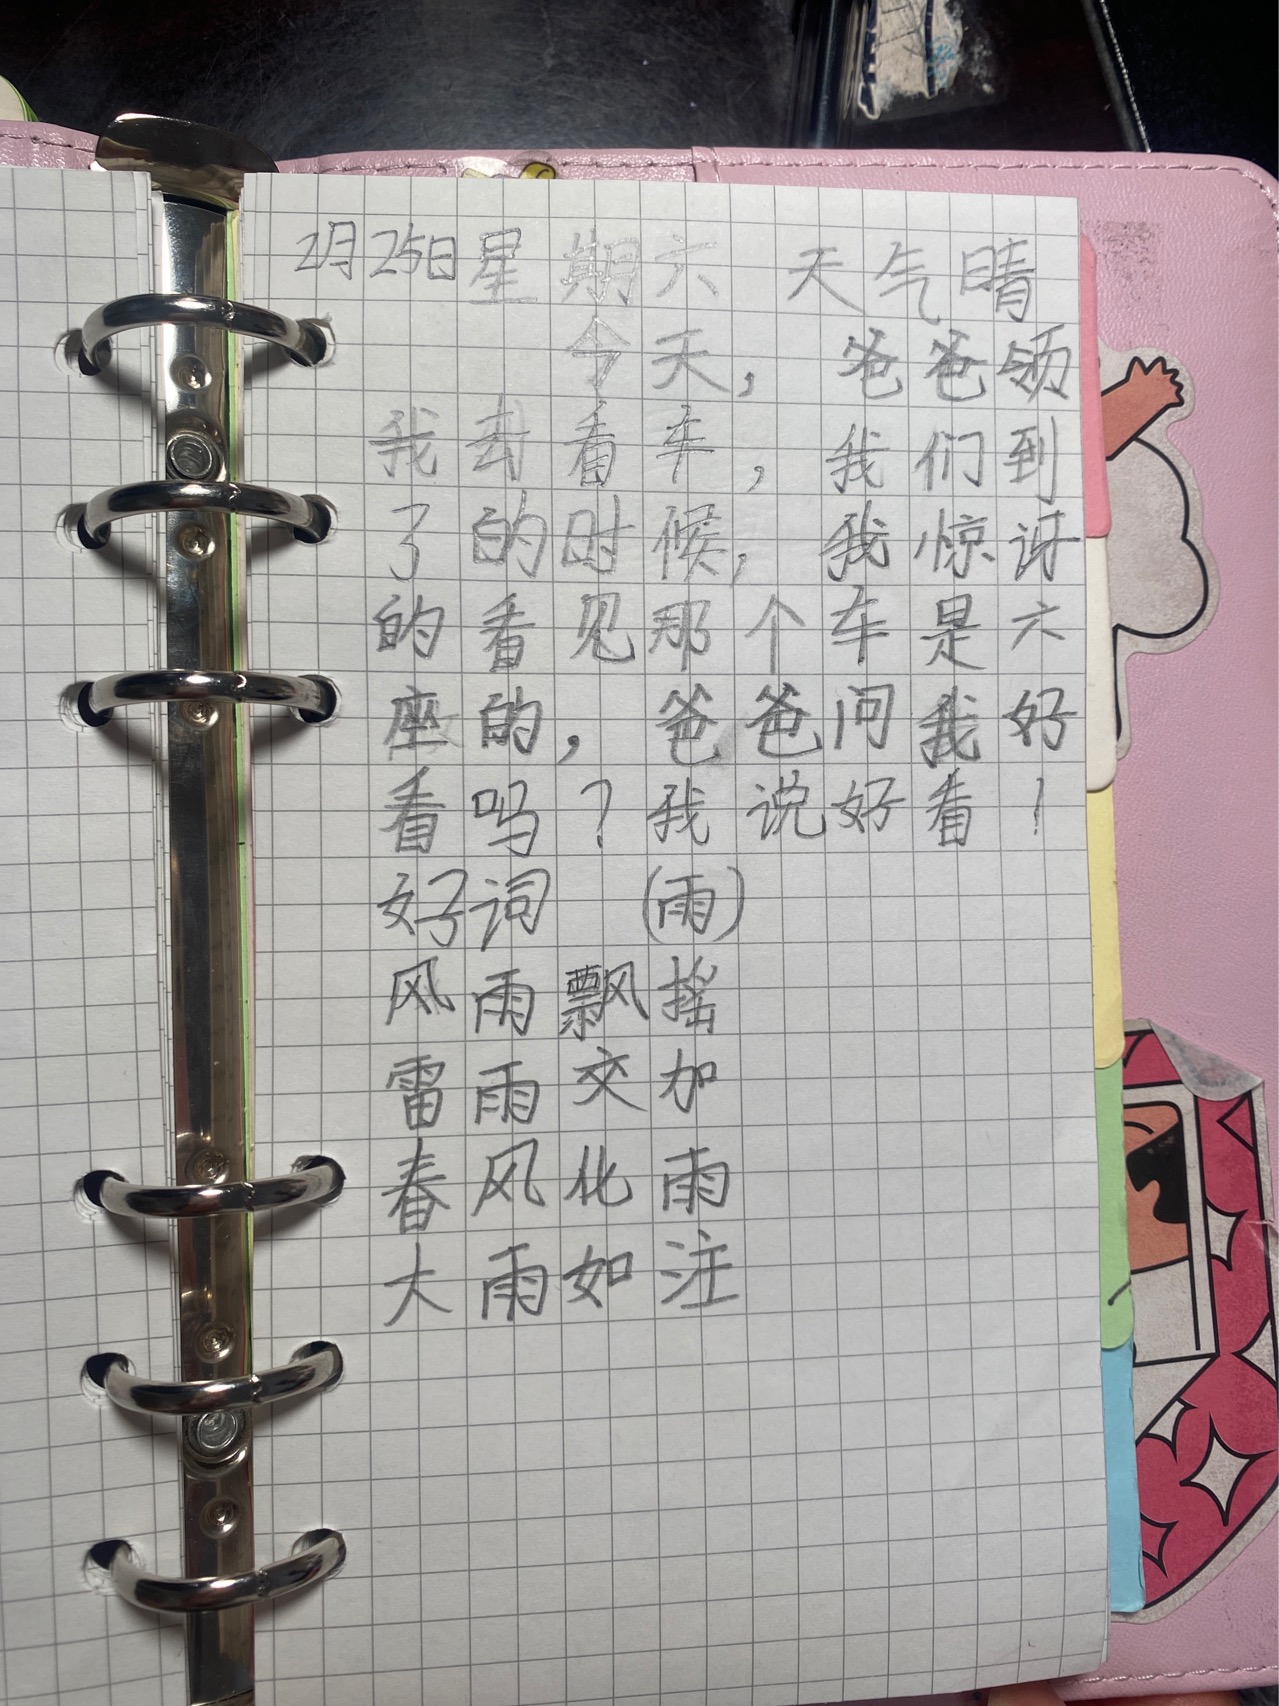 2月25日星期六 天气晴
今天，爸爸领
我去看车，我们到
了的时候，我惊讶
的看见那个车是六
座的，爸爸问我好
看吗？我说好看！
好词 （雨）
风雨飘摇
雷雨交加
春风化雨
大雨如注